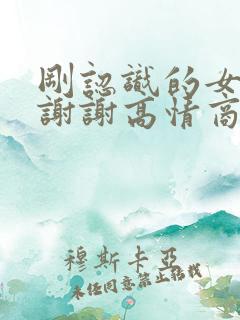 剛認識的女
謝謝高情商
穆斯卡亞
未經同意禁止轉載